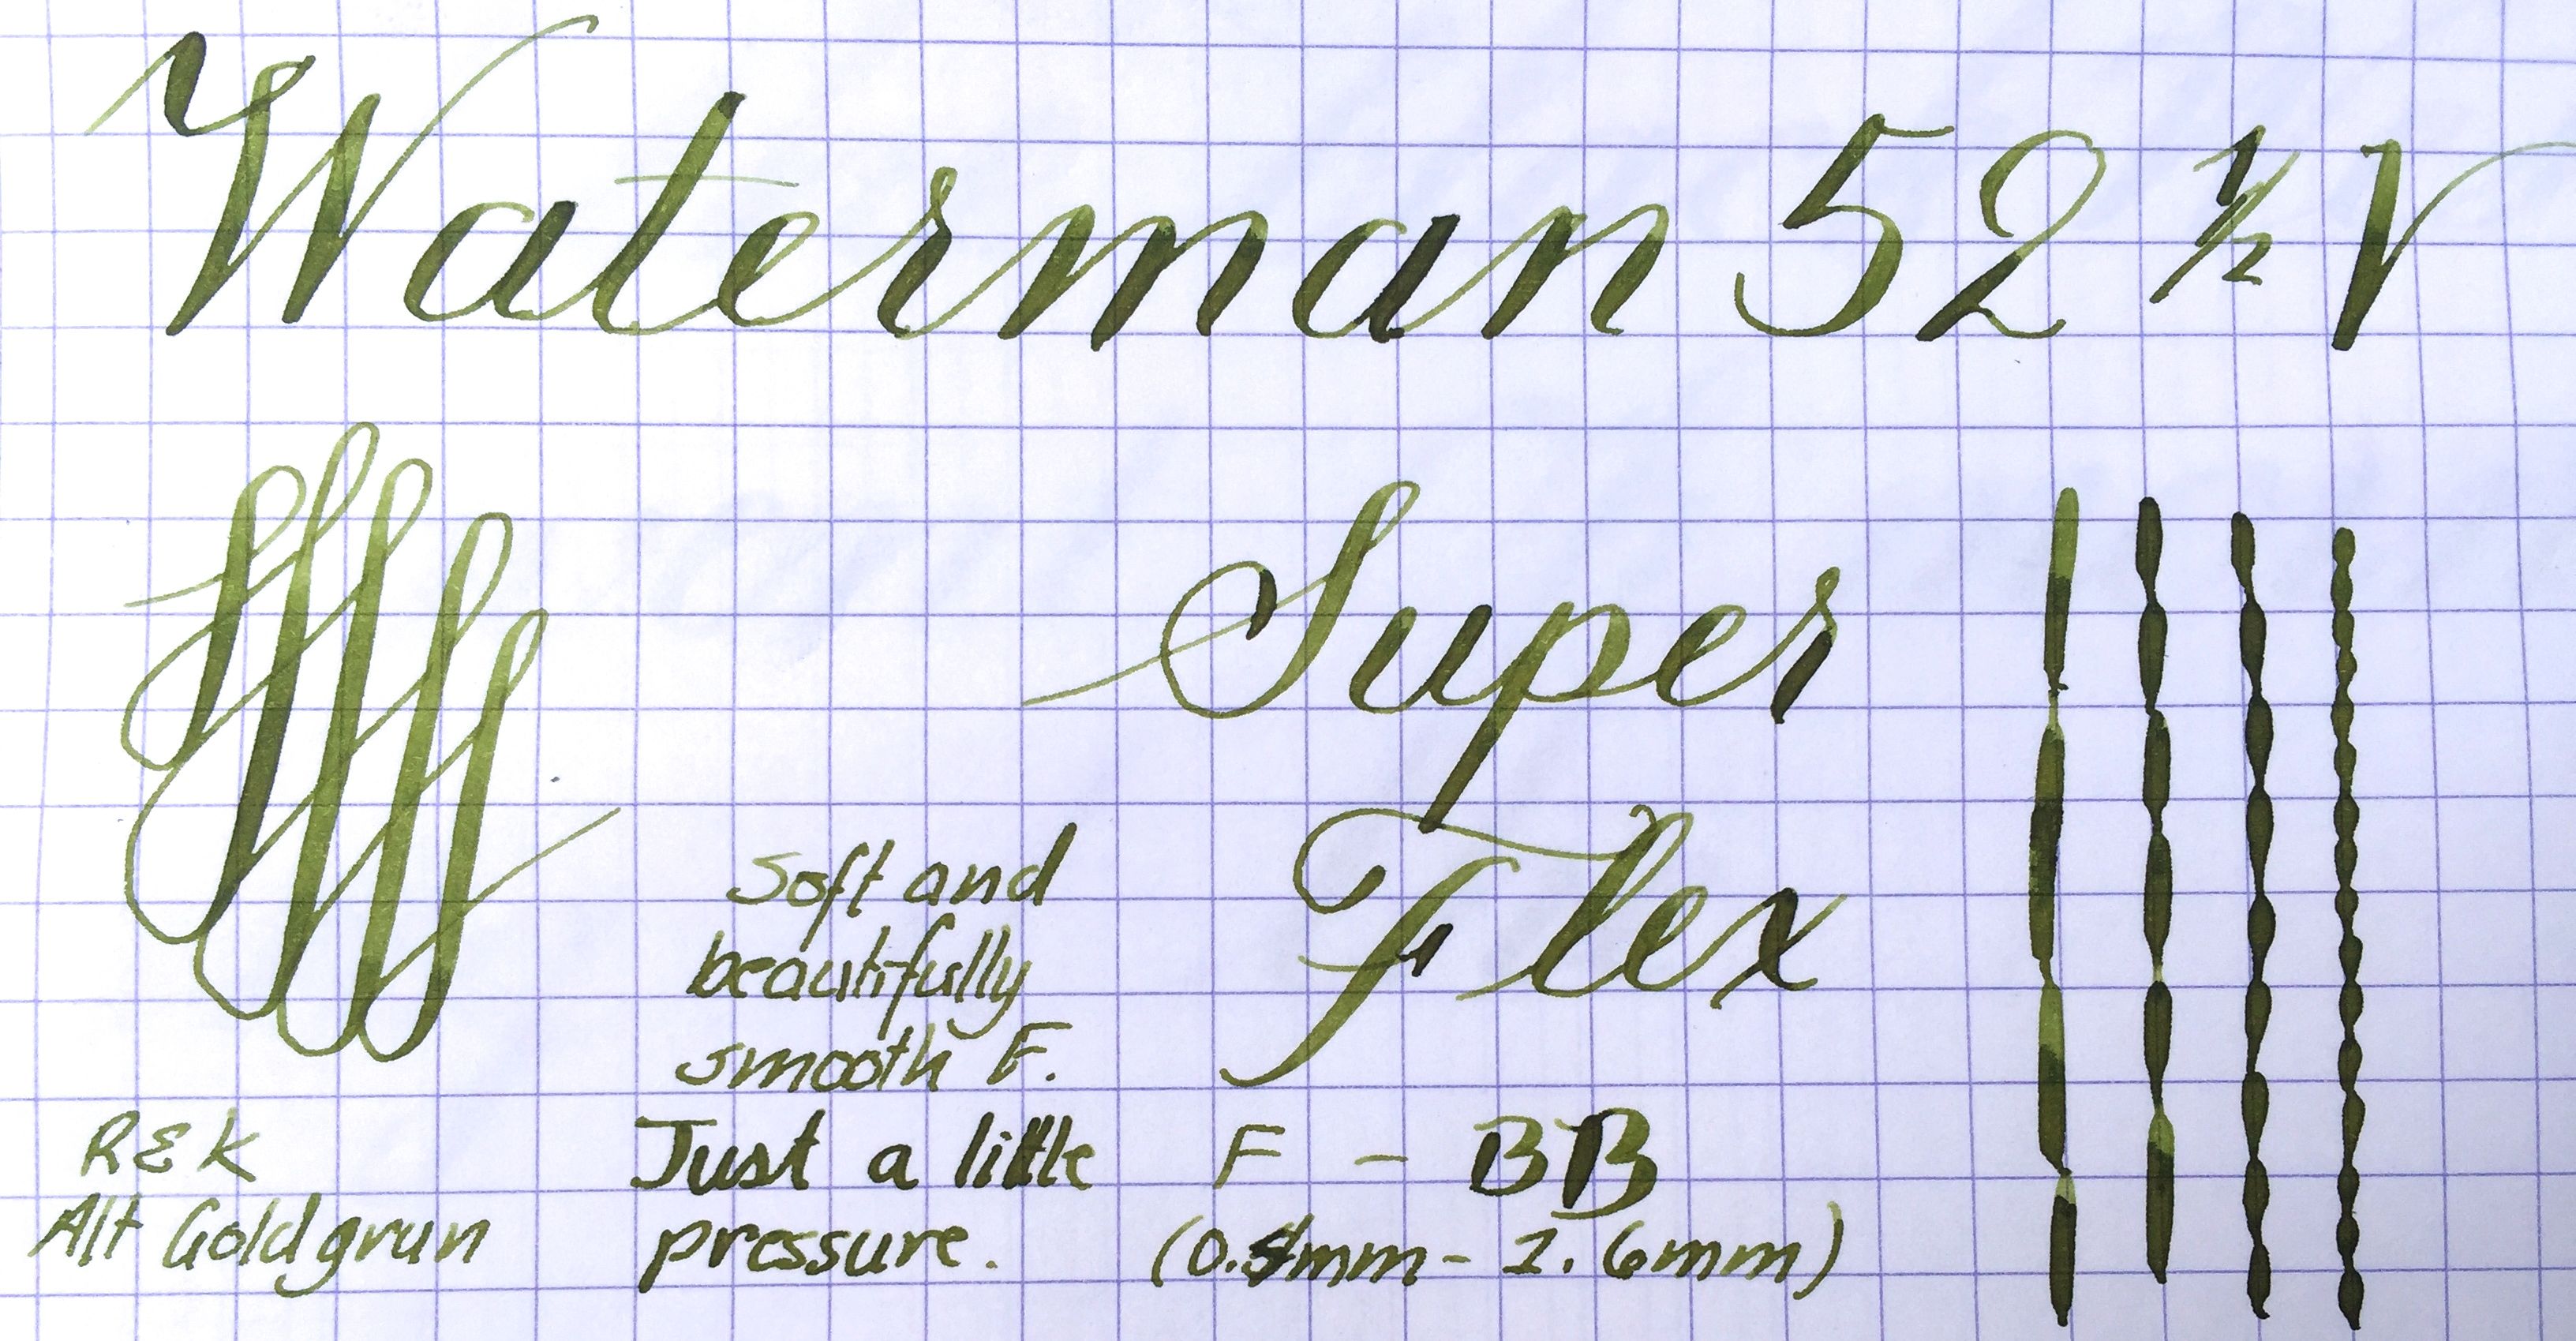 Waterman 52 ½ V
Super
Flex
Soft and
beautifully
smooth F.
R & K
Alt Goldgrun
Just a little
pressure.
F - BB
mm - 1.6mm)